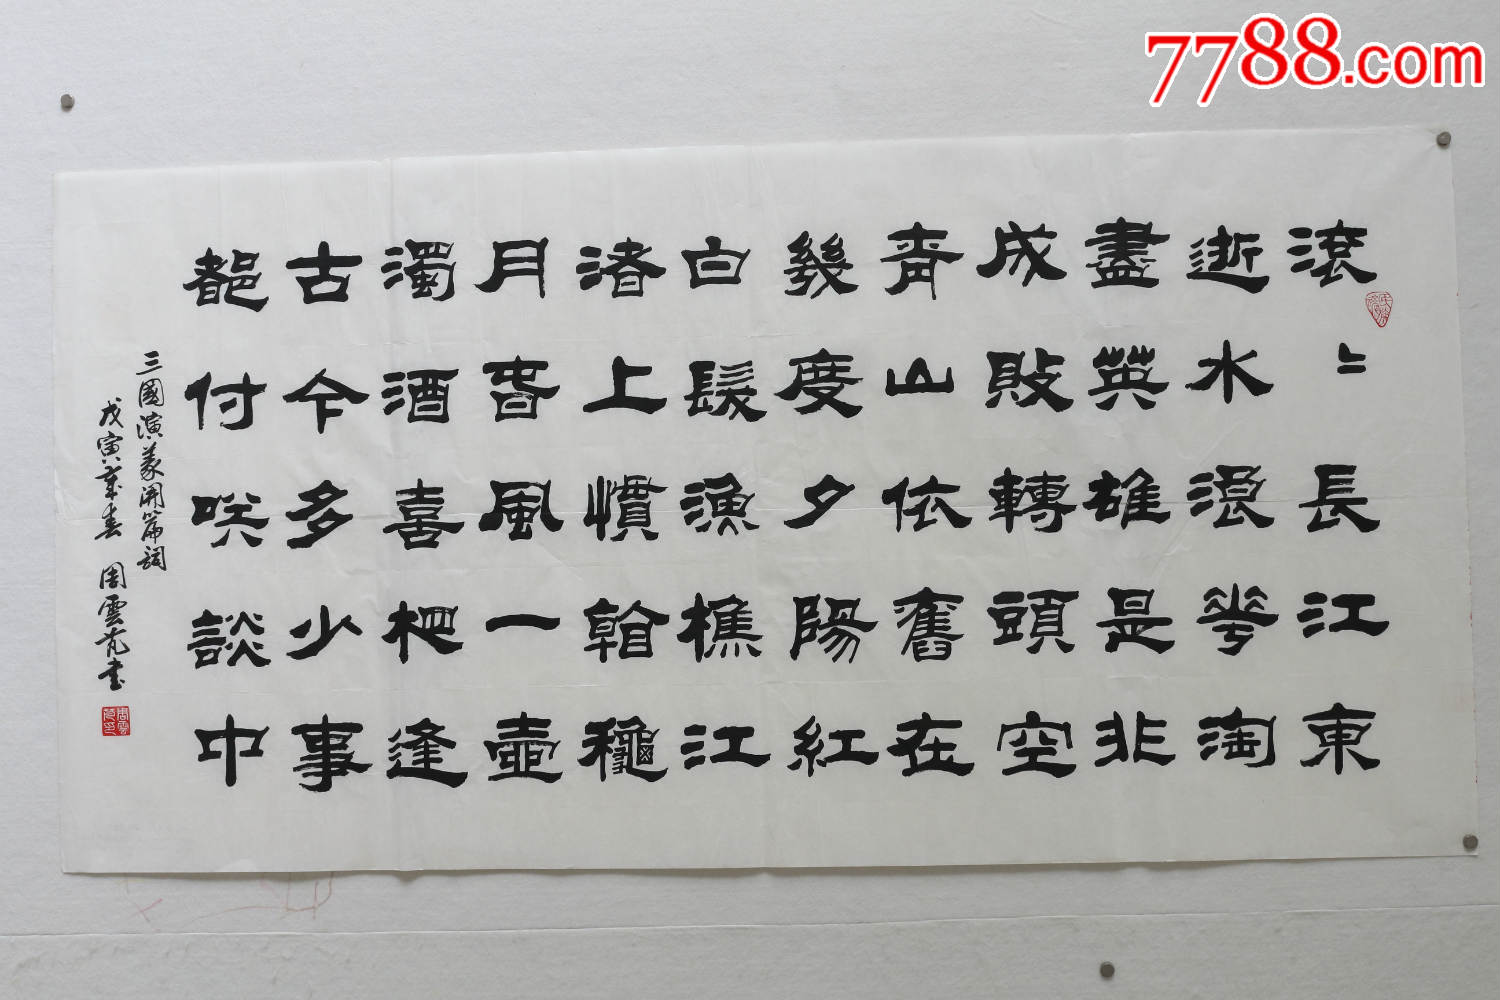 7788.com
滾〻長江東
逝水浪華淘
盡英雄是非
成敗轉頭空
青山依舊在
幾度夕陽紅
白髮漁樵江
渚上慣看龝
月春風一壺
濁酒喜相逢
古今多少事
都付咲談中
三國演義開篇詞
戊寅年春 周雲书